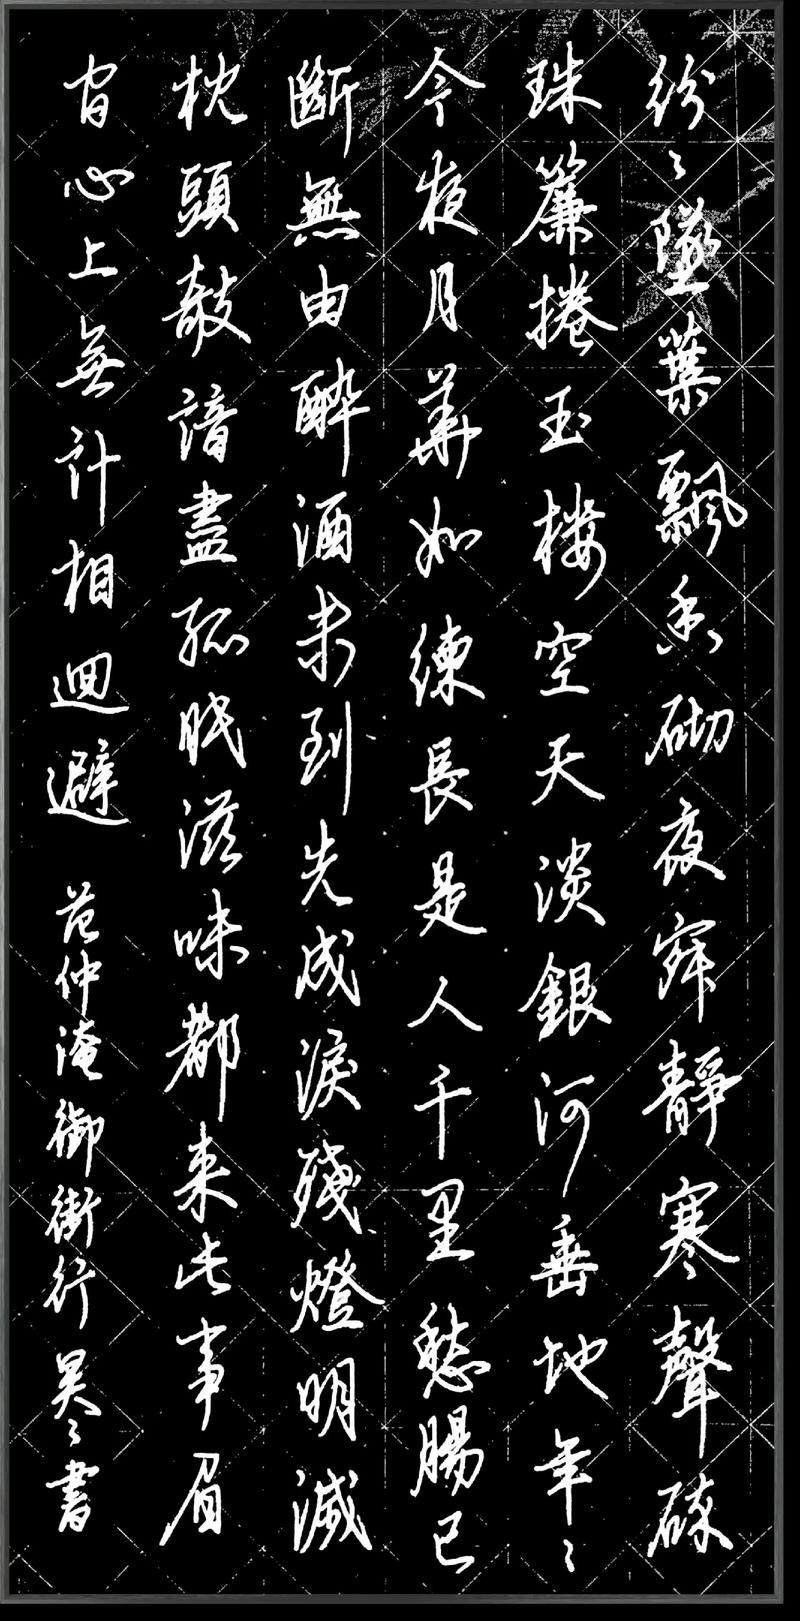 紛〻墜葉飄香砌夜寂靜寒聲碎
珠簾捲玉楼空天淡銀河垂地年〻
今夜月華如練長是人千里愁腸已
斷無由醉酒未到先成淚殘燈明滅
枕頭敧諳盡孤眠滋味都来此事眉
間心上無計相迴避 范仲淹御街行昊〻書